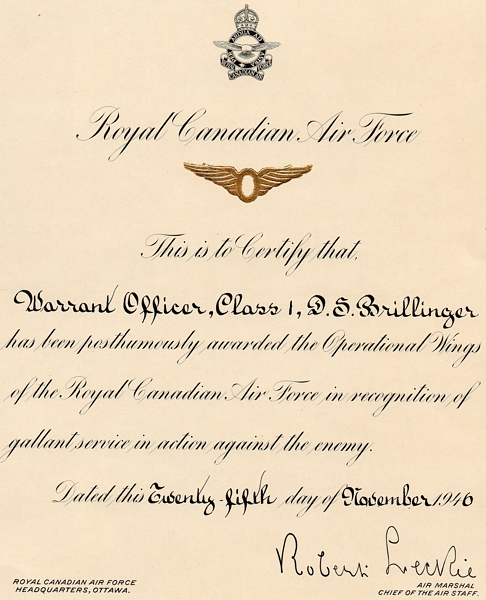 Royal Canadian Air Force
This is to Certify that,
Warrant Officer, Class 1, D. S. Brillinger
has been posthumously awarded the Operational Wings
of the Royal Canadian Air Force in recognition of
gallant service in action against the enemy.
Dated this Twenty-fifth day of November 1946
Robert Leckie
ROYAL CANADIAN AIR FORCE
HEADQUARTERS, OTTAWA.
AIR MARSHAL
CHIEF OF THE AIR STAFF.